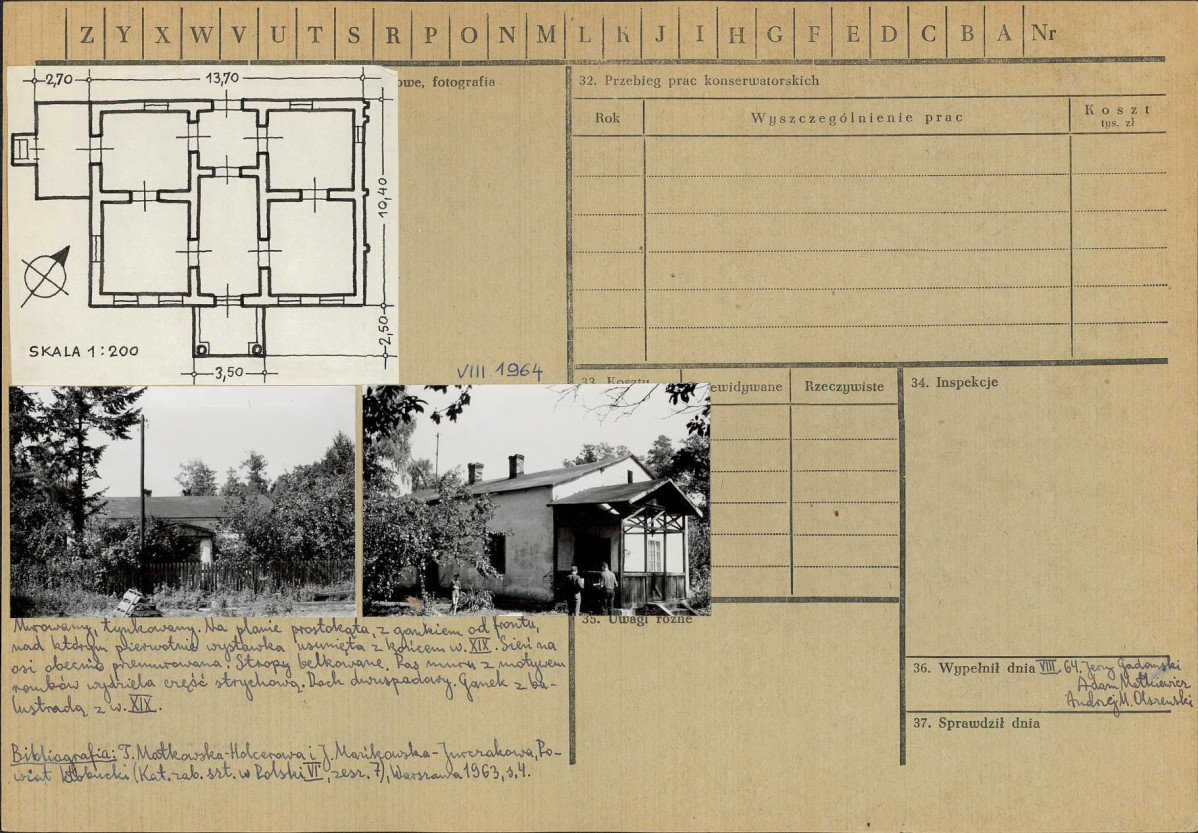 Z Y X W V U T S R P O N M L K J I H G F E D C B A Nr
owe, fotografia
2,70
13,70
10,40
2,50
3,50
SKALA 1:200
VIII 1964
32. Przebieg prac konserwatorskich
Rok
Wyszczególnienie prac
Koszt
tys. zł
33. Koszty
ewidywane
Rzeczywiste
34. Inspekcje
Murowany, tynkowany. Na planie prostokąta, z gankiem od frontu,
nad którym pierwotnie wystawka usunięta z końcem w. XIX. Sień na
osi obecnie przemurowana. Stropy belkowane. Pas muru z motywem
rombów wydziela część strychową. Dach dwuspadowy. Ganek z ba-
lustradą z w. XIX.
Bibliografia: T. Małkowska-Holcerowa i J. Mańkowska-Jurczakowa, Po-
wiat kłobucki (Kat. zab. szt. w Polski VI, zesz. 7), Warszawa 1963, s. 4.
35. Uwagi różne
36. Wypełnił dnia VIII. 64. Jerzy Gadomski
Adam Małkiewicz
Andrzej M. Olszewski
37. Sprawdził dnia